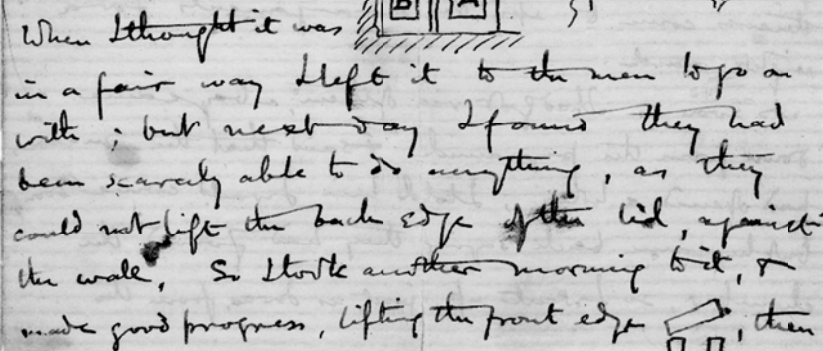 B A
When I thought it was
in a fair way I left it to the men to go on
with; but next day I found they had
been scarcely able to do anything, as they
could not lift the back edge of the lid, against
the wall. So I took another morning to it, &
made good progress, lifting the front edge , then